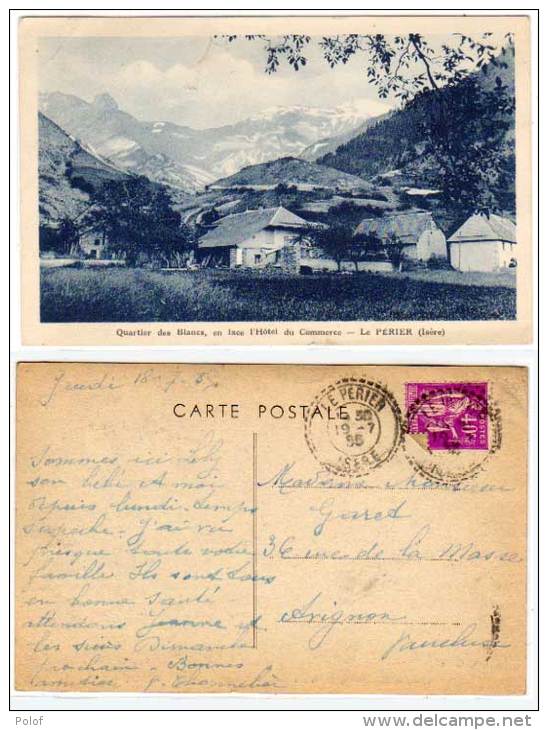 Quartier des Blancs, en face l'Hôtel du Commerce — Le PÉRIER (Isère)
Jeudi 18-7-35
CARTE POSTALE
LE PERIER
19 -7
35
ISÈRE
POSTES
Sommes ici
son bébé et moi
depuis lundi. temps
superbe - J'ai vu
presque toute votre
famille Ils sont tous
en bonne santé
attendons Jeanne et
les siens Dimanche
prochain - Bonnes
amitiés
Madame
Garet
36 rue de la Masse
Avignon
Vaucluse
Polof
www.delcampe.net